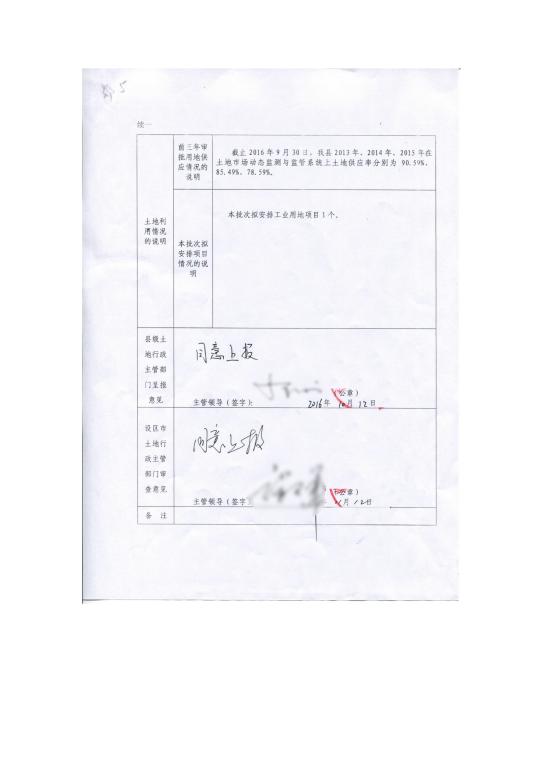 续一
前三年审
批用地供
应情况的
说明
截止2016年9月30日，我县2013年、2014年、2015年在
土地市场动态监测与监管系统上土地供应率分别为 90.59%、
85.49%、78.59%。
土地利
用情况
的说明
本批次拟
安排项目
情况的说
明
本批次拟安排工业用地项目1个。
县级土
地行政
主管部
门呈报
意见
同意上报
主管领导（签字）：
（公章）
2016年 10月 12日
设区市
土地行
政主管
部门审
查意见
同意上报
主管领导（签字）
（公章）
月 12日
备 注